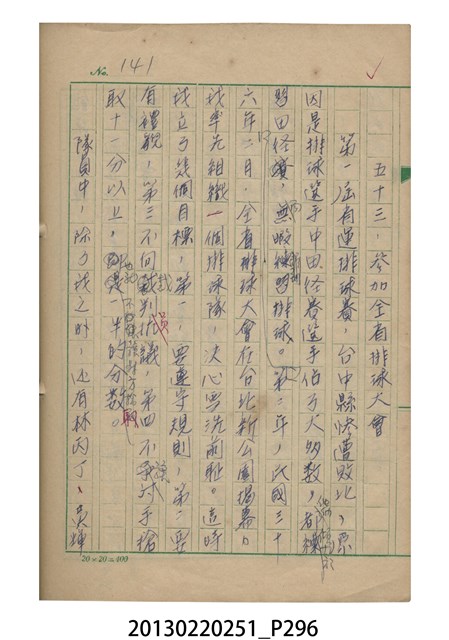 No. 141
五十三、參加全省排球大會
第一屆省運排球賽,台中縣快遭敗北,原
因是排球選手中田徑賽選手佔了大多數,
習田徑賽,無暇練習排球。第二年,民國三十
六年二月,全省排球大會在台北新公園揭幕,
我率先組織一個排球隊,決心要洗前恥。這時
我立了幾個目標,第一,要遵守規則,第二要
有禮貌,第三不向裁判抗議,第四不讓對手搶
取十一分以上,即是一半的分數。
隊員中,除了我之外,还有林丙丁、吳輝
20×20=400
20130220251_P296